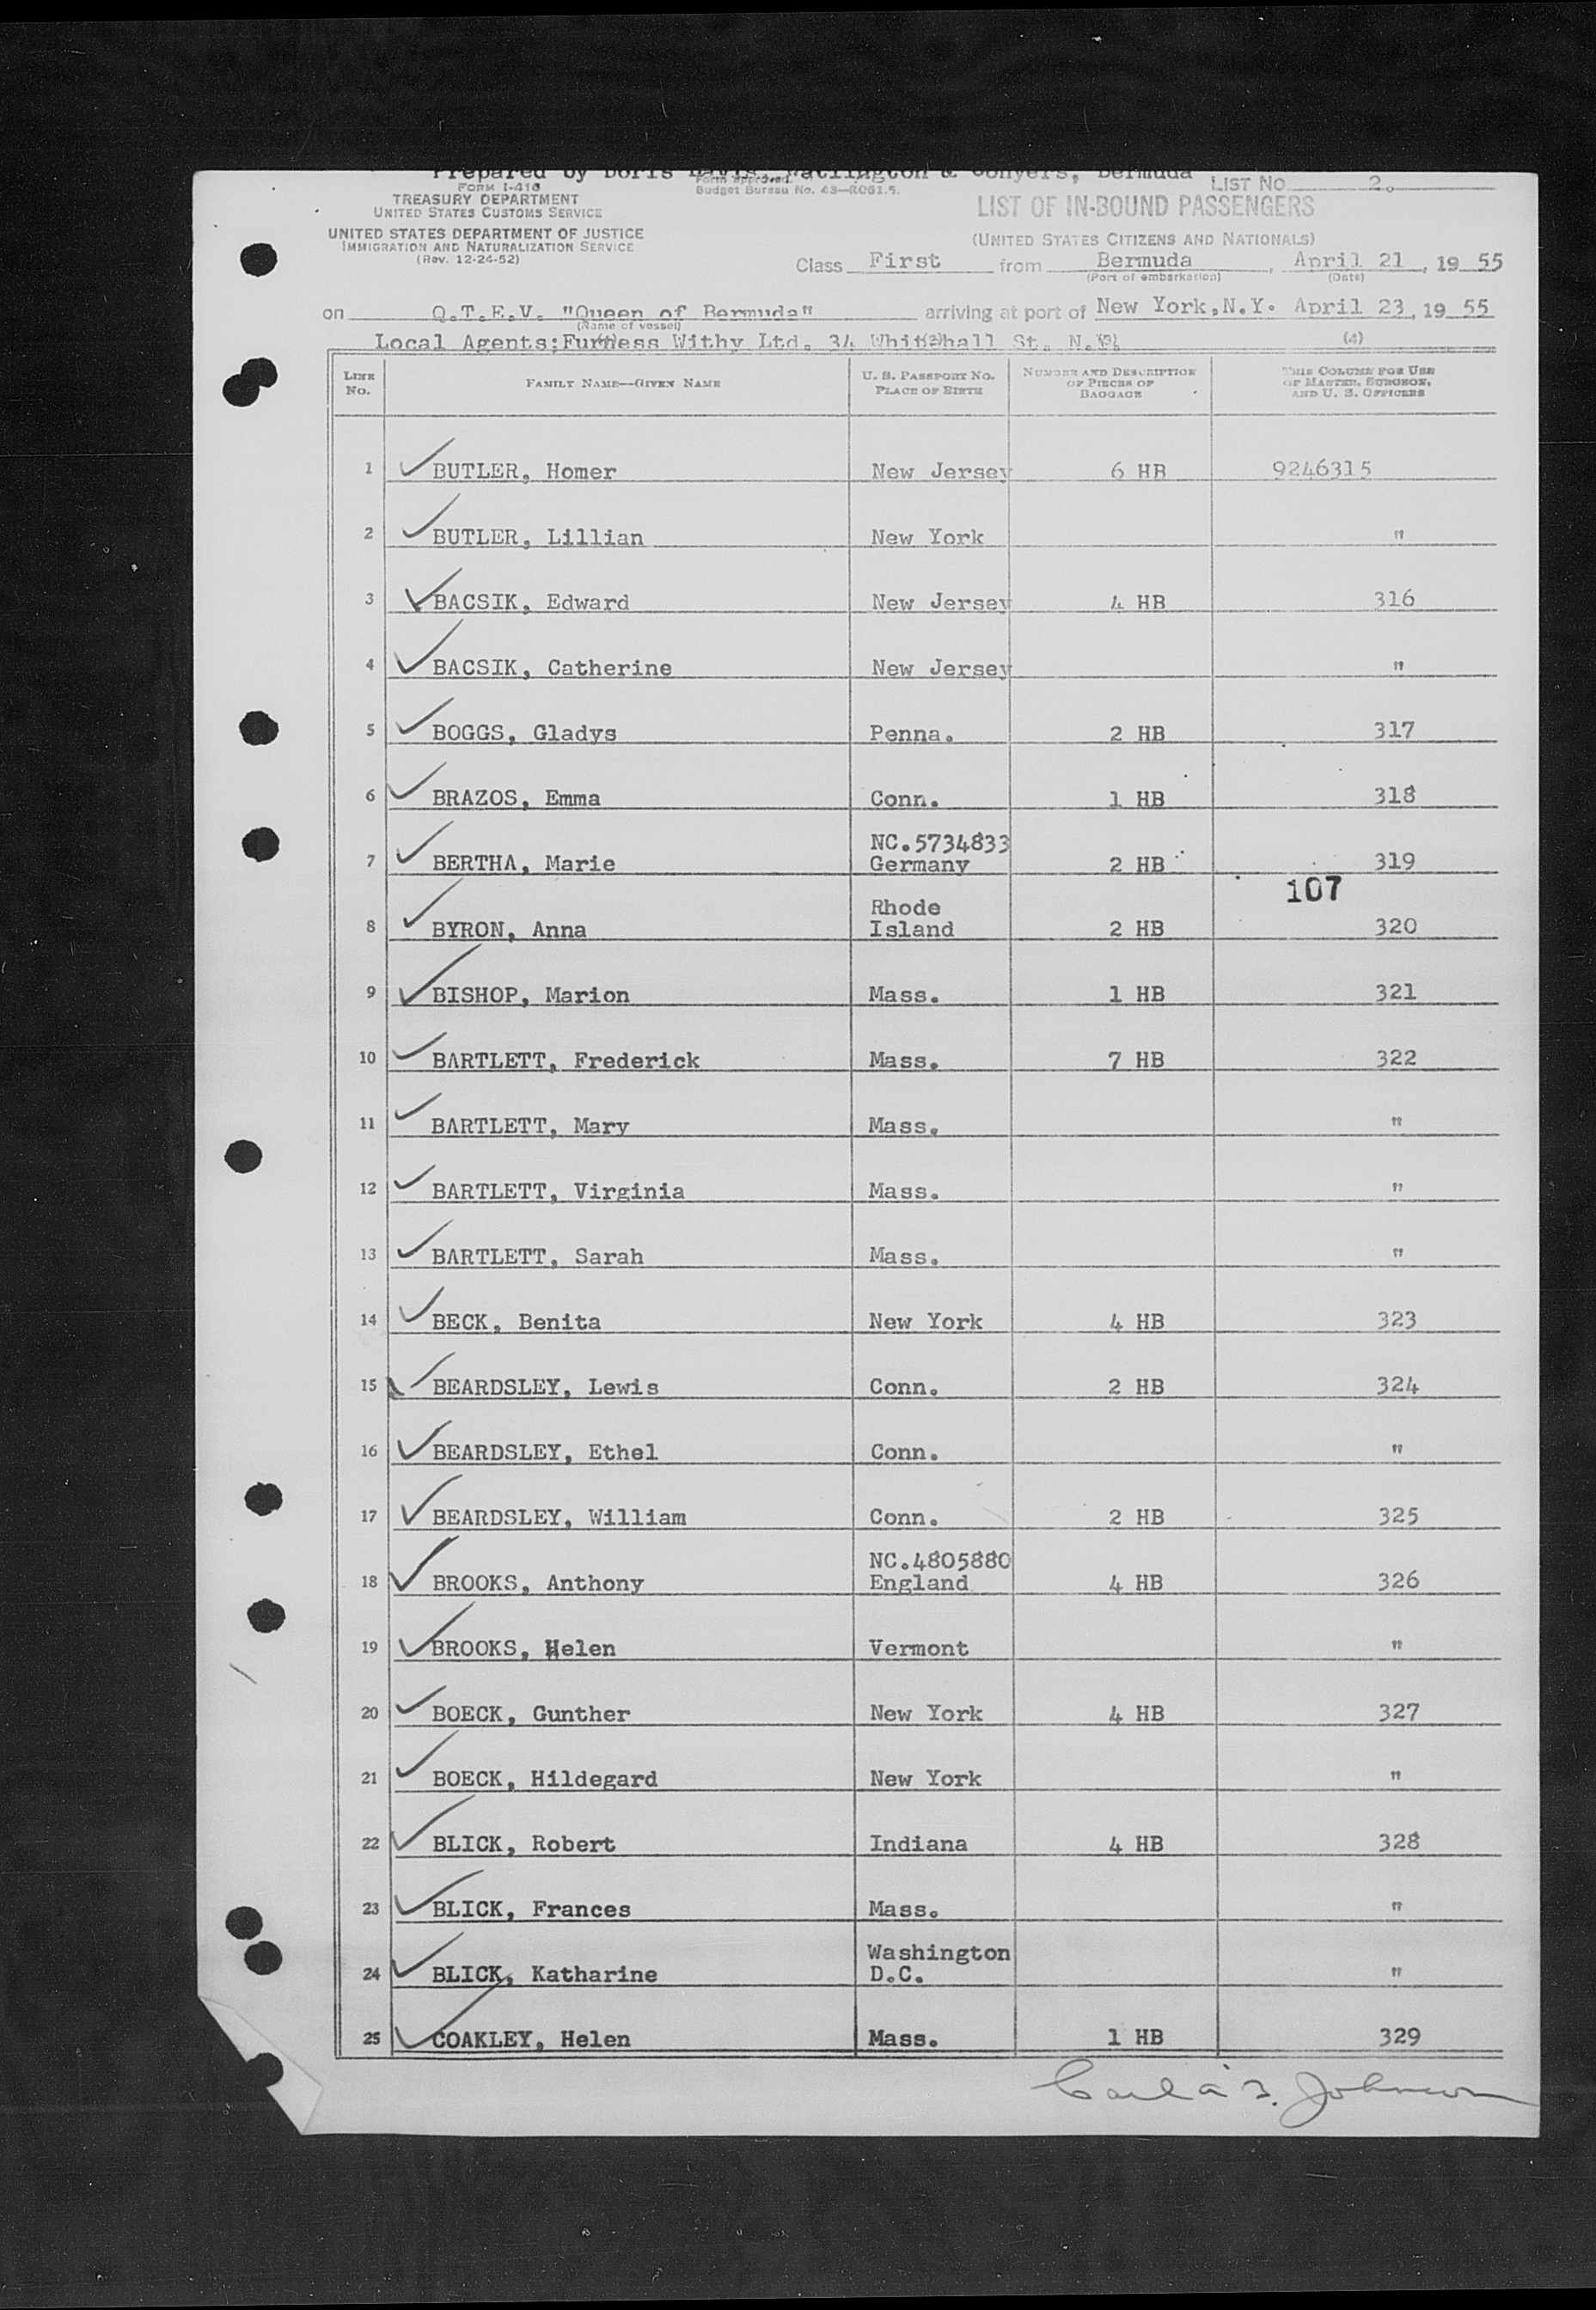 Prepared by Doris Davis, Watlington & Conyers, Bermuda
FORM I-418
TREASURY DEPARTMENT
UNITED STATES CUSTOMS SERVICE
UNITED STATES DEPARTMENT OF JUSTICE
IMMIGRATION AND NATURALIZATION SERVICE
(Rev. 12-24-52)
Form approved.
Budget Bureau No. 43—R061.5.
LIST NO. 2.
LIST OF IN-BOUND PASSENGERS
(UNITED STATES CITIZENS AND NATIONALS)
Class First from Bermuda, April 21, 19 55
(Port of embarkation) (Date)
on Q.T.E.V. "Queen of Bermuda" arriving at port of New York, N.Y. April 23, 19 55
(Name of vessel)
Local Agents: Furness Withy Ltd. 34 Whitehall St. N.Y.
(1) (2) (3) (4)
LINE No. FAMILY NAME—GIVEN NAME U. S. PASSPORT NO. PLACE OF BIRTH NUMBER AND DESCRIPTION OF PIECES OF BAGGAGE THIS COLUMN FOR USE OF MASTER, SURGEON, AND U. S. OFFICERS
1 BUTLER, Homer New Jersey 6 HB 9246315
2 BUTLER, Lillian New York "
3 BACSIK, Edward New Jersey 4 HB 316
4 BACSIK, Catherine New Jersey "
5 BOGGS, Gladys Penna. 2 HB 317
6 BRAZOS, Emma Conn. 1 HB 318
NC.5734833
7 BERTHA, Marie Germany 2 HB 319
107
Rhode
8 BYRON, Anna Island 2 HB 320
9 BISHOP, Marion Mass. 1 HB 321
10 BARTLETT, Frederick Mass. 7 HB 322
11 BARTLETT, Mary Mass. "
12 BARTLETT, Virginia Mass. "
13 BARTLETT, Sarah Mass. "
14 BECK, Benita New York 4 HB 323
15 BEARDSLEY, Lewis Conn. 2 HB 324
16 BEARDSLEY, Ethel Conn. "
17 BEARDSLEY, William Conn. 2 HB 325
NC.4805880
18 BROOKS, Anthony England 4 HB 326
19 BROOKS, Helen Vermont "
20 BOECK, Gunther New York 4 HB 327
21 BOECK, Hildegard New York "
22 BLICK, Robert Indiana 4 HB 328
23 BLICK, Frances Mass. "
Washington
24 BLICK, Katharine D.C. "
25 COAKLEY, Helen Mass. 1 HB 329
Johnson